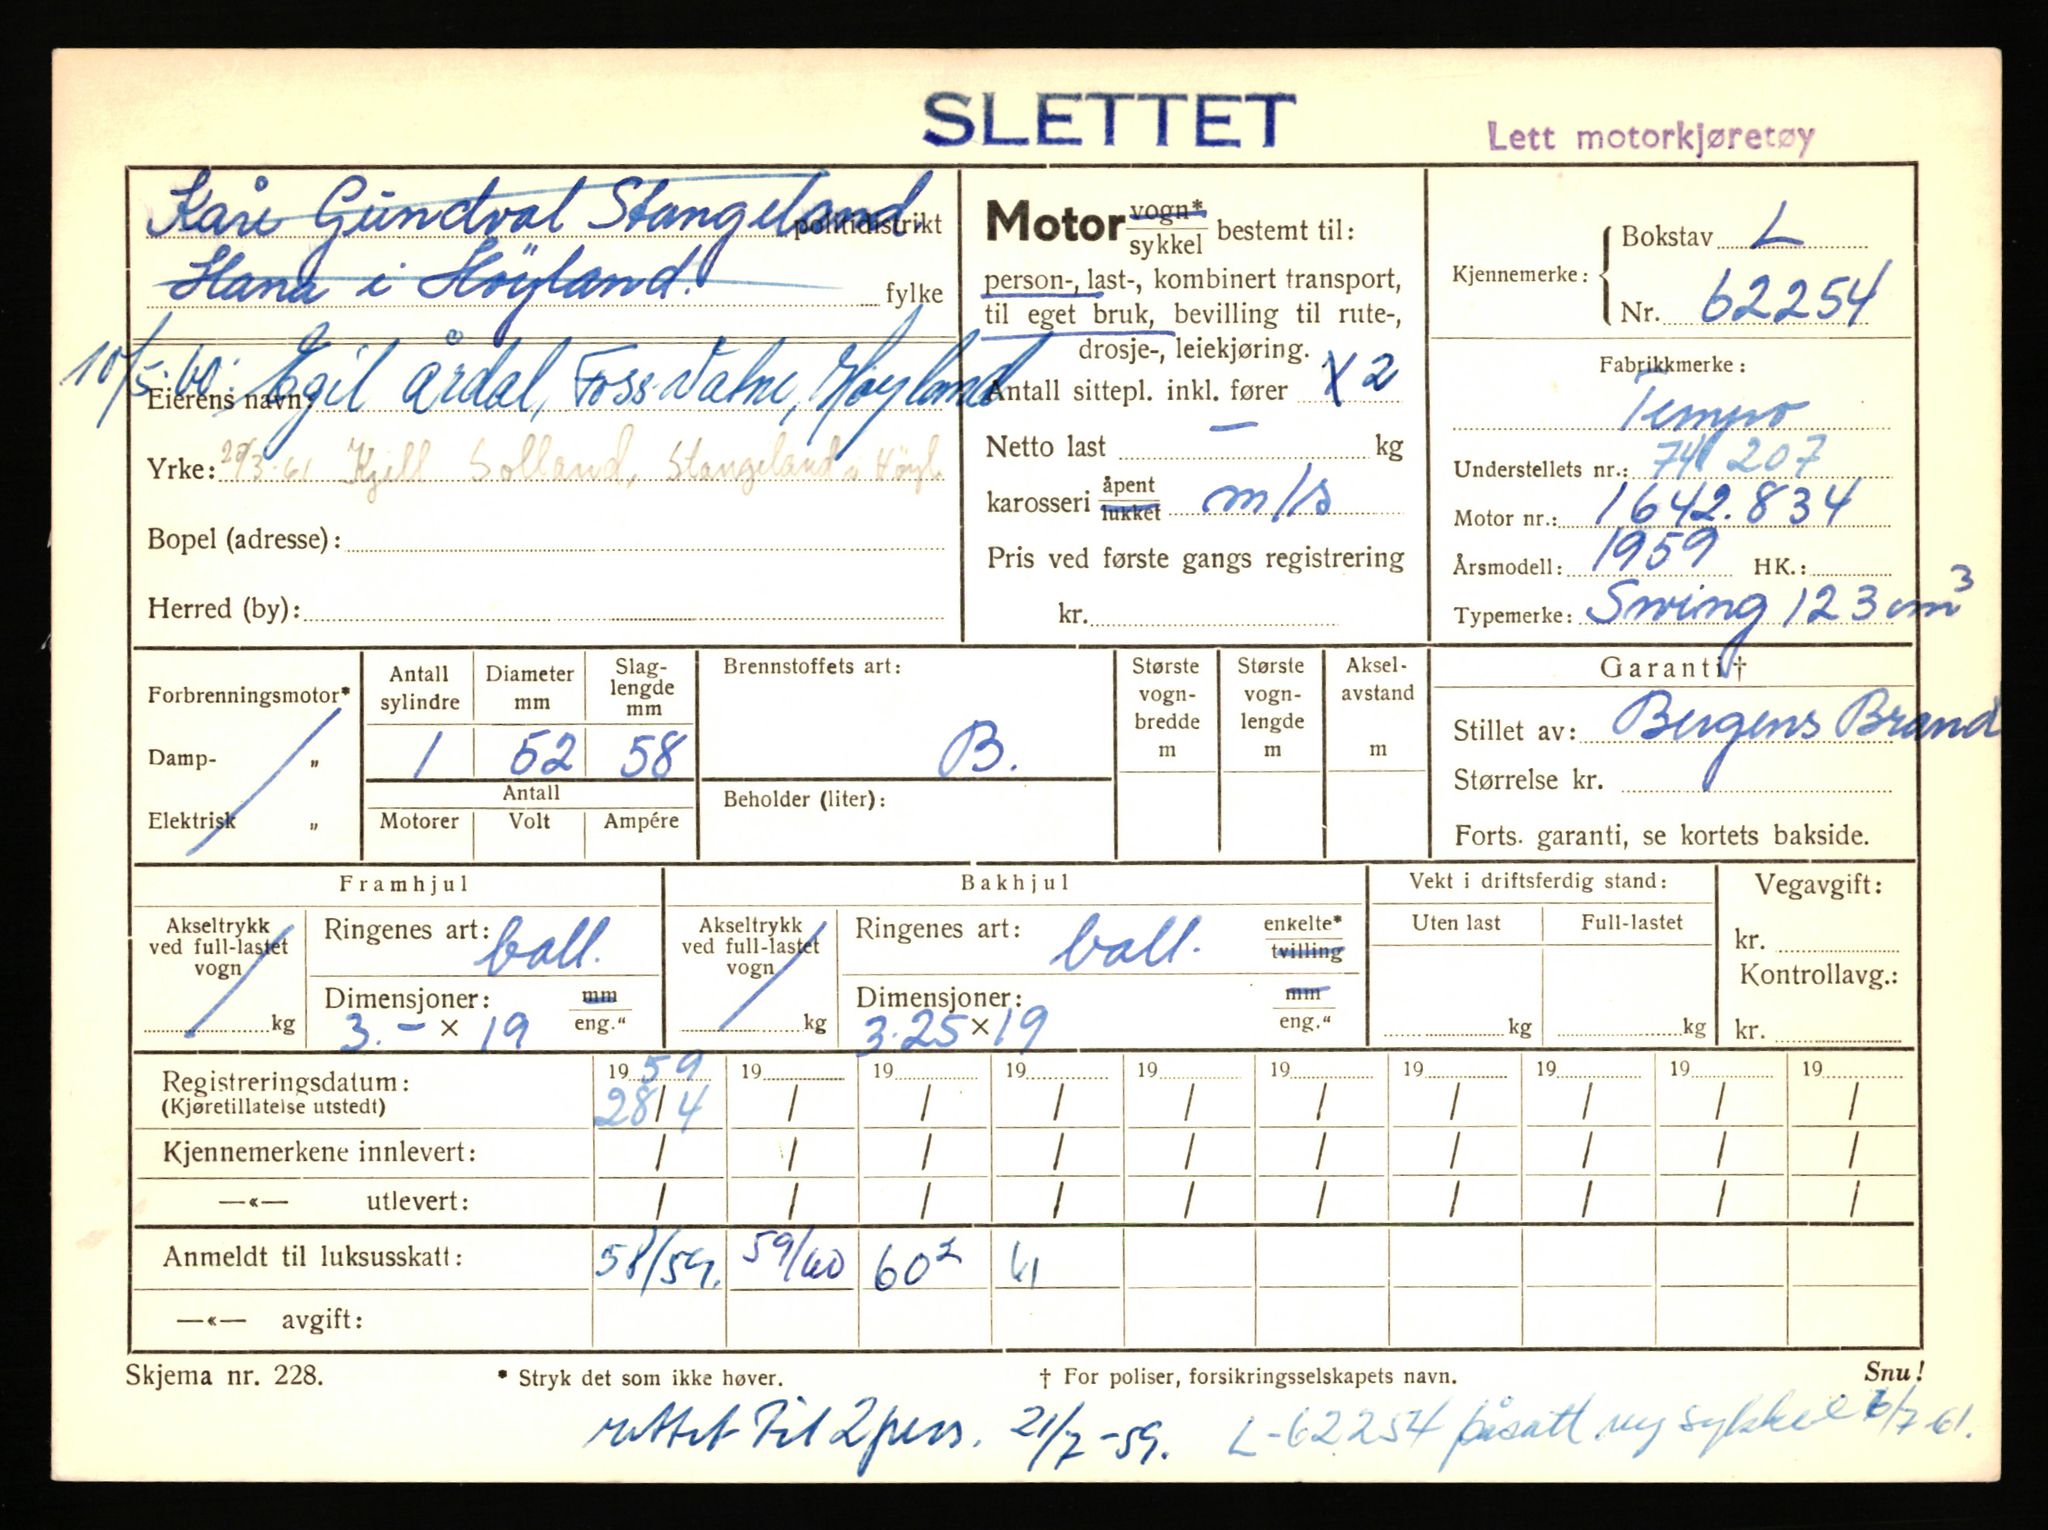 SLETTET
Lett motorkjøretøy
Kåre Gundval Stangeland politidistrikt
Hana i Höyland. fylke
10/5-60. Egil Årdal, Foss-Vatne, Høyland
Eierens navn:
Yrke: 20/3-61 Kjell Solland, Stangeland i Höyl.
Bopel (adresse):
Herred (by):
Motor vogn* / sykkel bestemt til:
person-, last-, kombinert transport,
til eget bruk, bevilling til rute-,
drosje-, leiekjøring.
Antall sittepl. inkl. fører 2
Netto last — kg
karosseri åpent / lukket m/s
Pris ved første gangs registrering
kr.
Kjennemerke: Bokstav L
Nr. 62254
Fabrikkmerke:
Tempo
Understellets nr.: 741 207
Motor nr.: 1642.834
Årsmodell: 1959 HK.:
Typemerke: Swing 123 cm³
Forbrenningsmotor*
Damp- „
Elektrisk „
Antall sylindre Diameter mm Slag-lengde mm
1 52 58
Antall
Motorer Volt Ampére
Brennstoffets art:
B.
Beholder (liter):
Største vogn-bredde m
Største vogn-lengde m
Aksel-avstand m
Garanti †
Stillet av: Bergens Brand
Størrelse kr.
Forts. garanti, se kortets bakside.
Framhjul
Akseltrykk ved full-lastet vogn kg
Ringenes art: ball.
Dimensjoner: mm / eng."
3.- × 19
Bakhjul
Akseltrykk ved full-lastet vogn kg
Ringenes art: ball. enkelte* / tvilling
Dimensjoner: mm / eng."
3.25 × 19
Vekt i driftsferdig stand:
Uten last Full-lastet
kg kg
Vegavgift:
kr.
Kontrollavg.:
kr.
Registreringsdatum: 1959 19 19 19 19 19 19 19 19 19
(Kjøretillatelse utstedt) 28/4 / / / / / / / / /
Kjennemerkene innlevert: / / / / / / / / / /
—«— utlevert: / / / / / / / / / /
Anmeldt til luksusskatt: 58/59. 59/60 60² 61
—«— avgift:
Skjema nr. 228. * Stryk det som ikke høver. † For poliser, forsikringsselskapets navn. Snu!
rettet til 2 pers. 21/7-59. L-62254 påsatt ny sykkel 6/7-61.